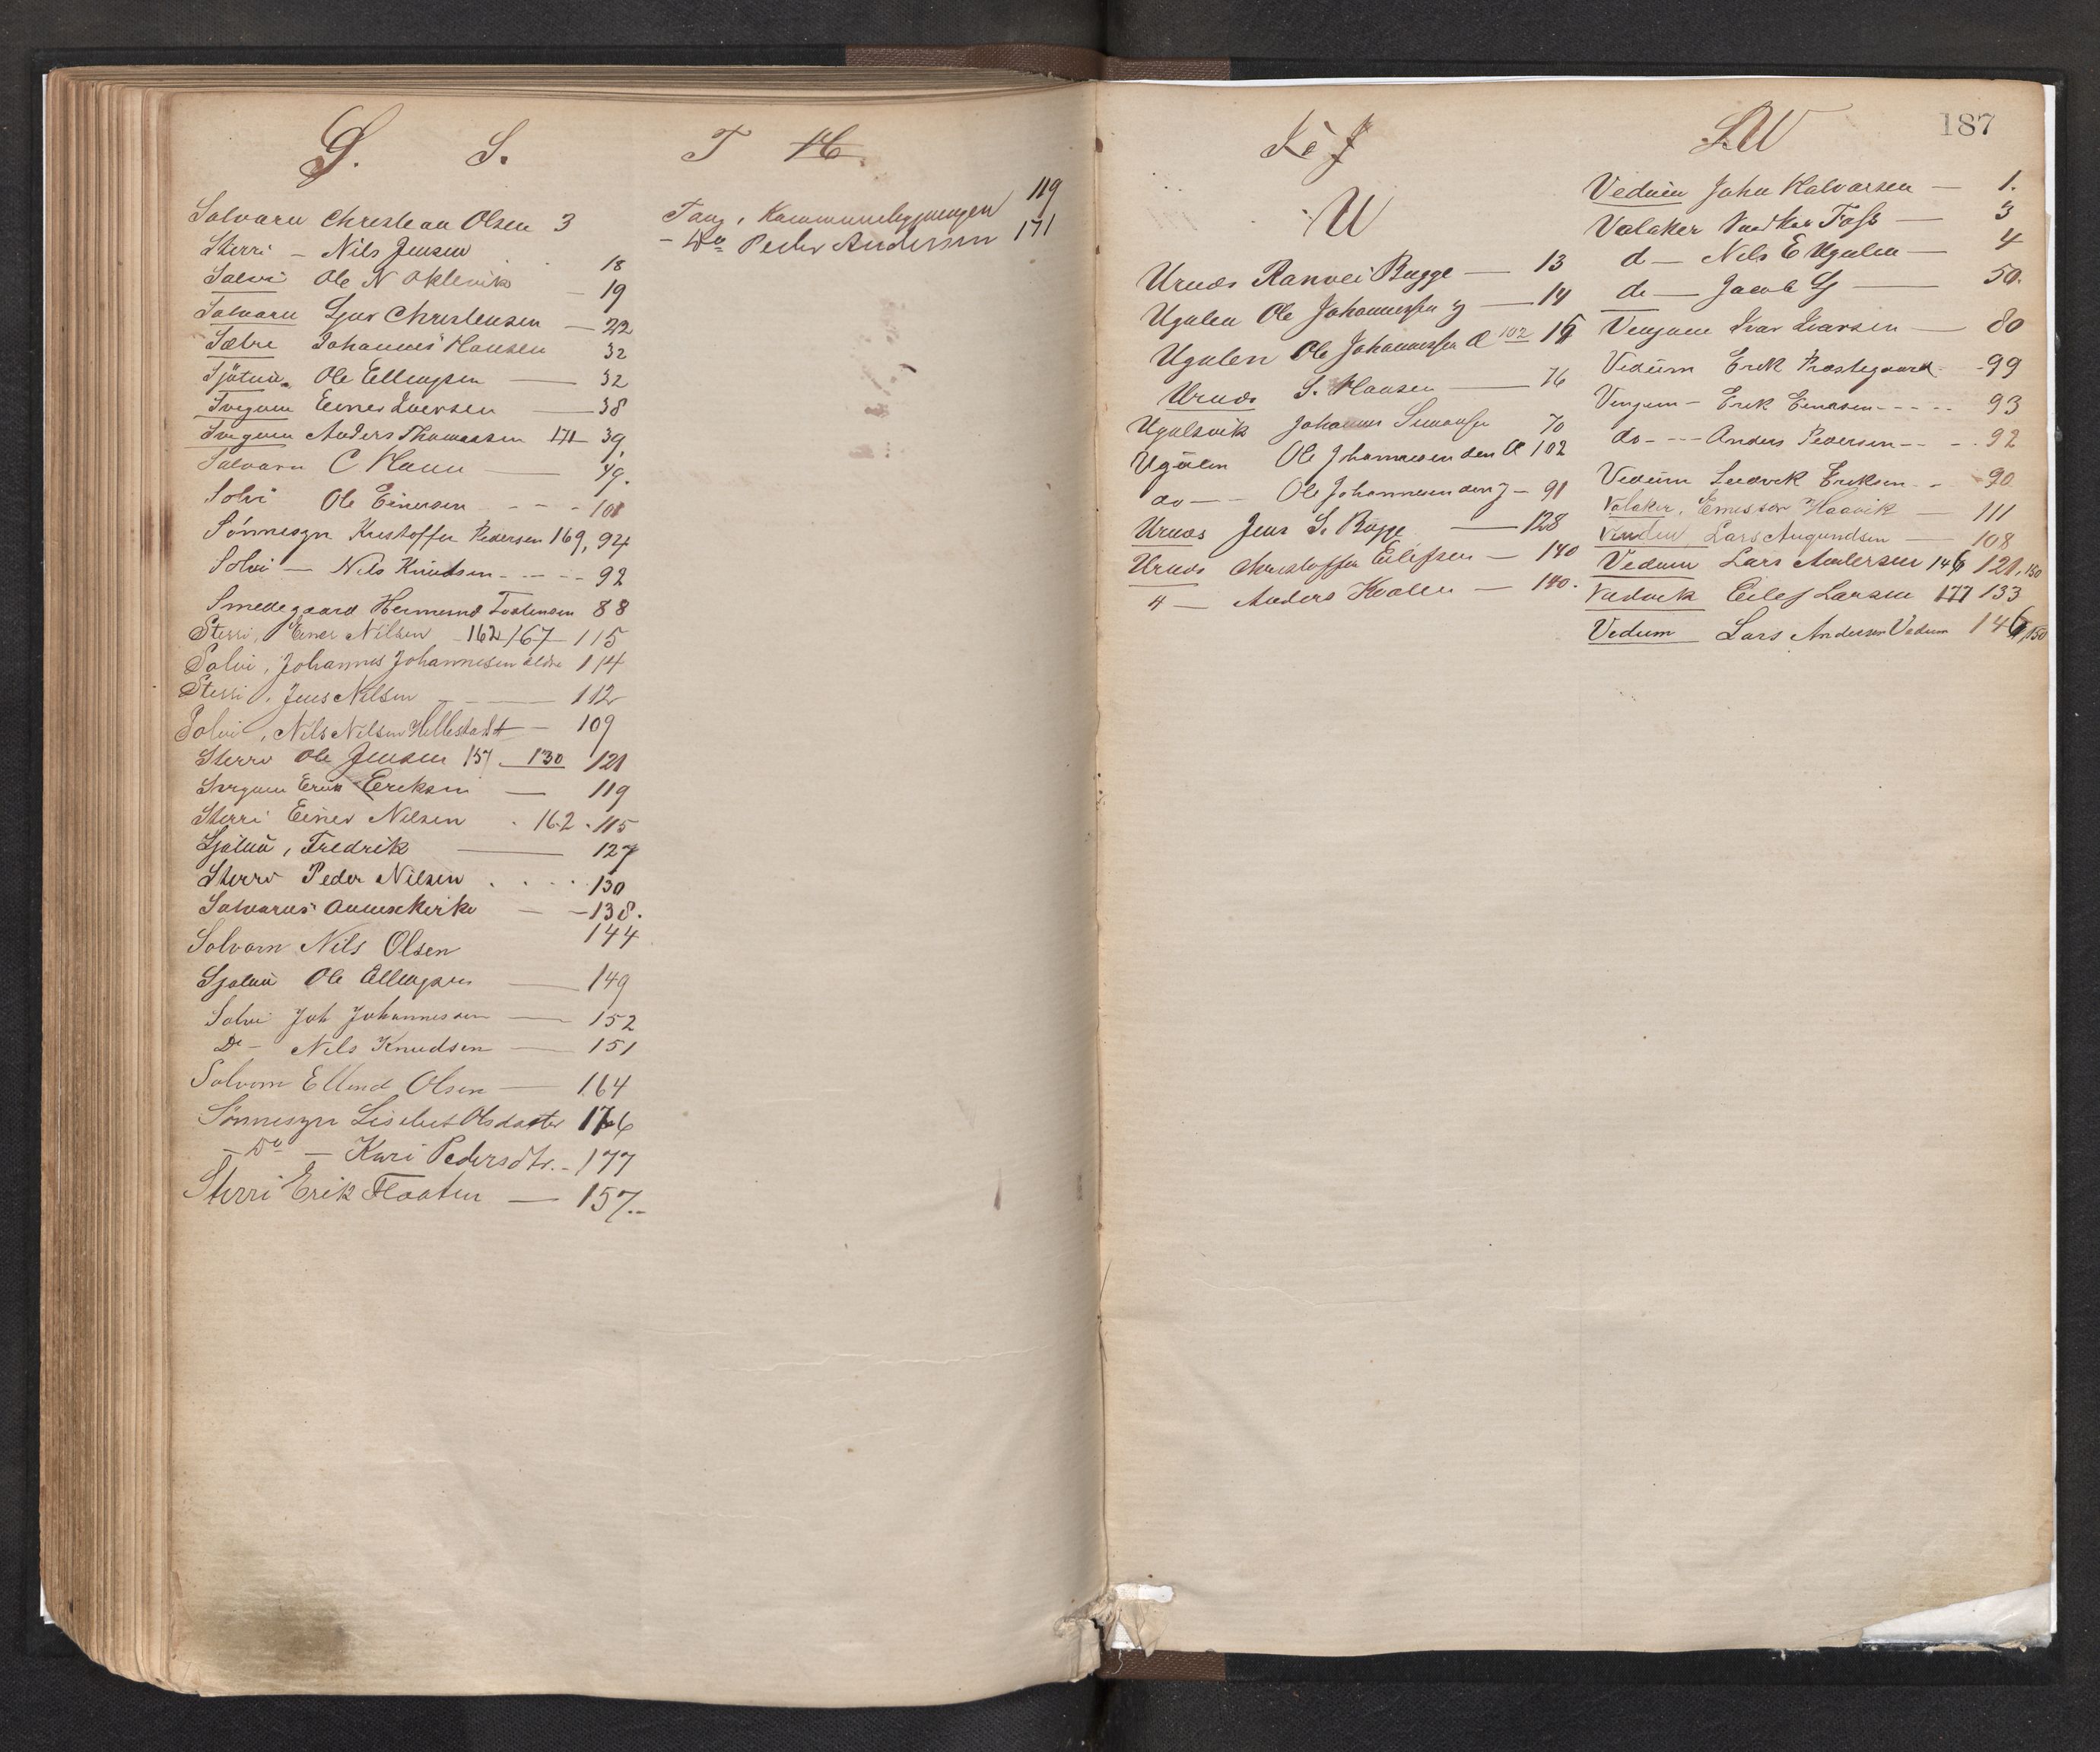 S. S.
Solvarn Christean Olsen 3
Sterri - Nils Jensen 18
Solvi Ole N Oklevik - 19
Solvarn Sjur Christensen - 22
Sæbre Johannes Hansen 32
Sjøtun Ole Ellingsen - 32
Svegum Einer Iversen - 38
Svegum Anders Thomassen 171 39
Solvarn C Mann - 49.
Solvi Ole Einersen - - - 101
Sønnesyn Kristoffer Pedersen 169, 94
Solvi - Nils Knudsen - - - - 92
Smedegaard Hermund Tostensen 88
Sterri, Einer Nilsen 162 167 - 115
Solvi, Johannes Johannesen ældre 114
Sterri, Jens Nilsen - 112
Solvi, Nils Nilsen Hillestad - 109
Sterri Ole Jensen 157 130 121
Svegum Erik Eriksen - 119
Sterri Einer Nilsen . 162 . 115
Sjøtun, Fredrik - 127
Sterri Peder Nilsen . . . . 130
Solvarns Annexkirke - - 138.
Solvorn Nils Olsen 144
Sjøtun Ole Ellingsen - 149
Solvi Joh Johannessen - 152
Do - Nils Knudsen - 151
Solvorn Ellend Olsen - 164
Sønnesyn Lisebet Olsdatter 176
- Do - Kari Pedersdtr. - 177
Sterri Erik Flaaten - 157..
T H
Tang, Kommunebygningen 119
- Do Peder Andersen 171
U
Urnæs Ranvei Bugge - 13
Ugulen Ole Johannessen y - 14
Ugulen Ole Johannessen Æ 102 15
Urnæs S. Hansen - 76
Ugulsvik Johannes Simonsen 70
Ugulen Ole Johannesen den Æ 102
do - - Ole Johannesen den y - 91
Urnæs Jens S. Bugge - 128
Urnæs Christoffer Eilefsen - 140
" - Anders Kvalen - 140.
187
W
Vedum John Halvorsen - 1.
Valaker Foss - 3
d - Nils E Ugulen - 4
do - Jacob - 50.
Vengum Ivar Ivarsen - 80
Vedum Erik Præstegaard - 99
Vengum - Erik Einersen - - - - - 93
do - - - Anders Pedersen - - - 92
Vedum Ludvik Eriksen - - 90
Valaker, Haavik - 111
Lars Augundsen - 108
Vedum Lars Andersen 146 121, 150
Vedvik Eilef Larsen 177 133
Vedum Lars Andersen Vedum 146, 150